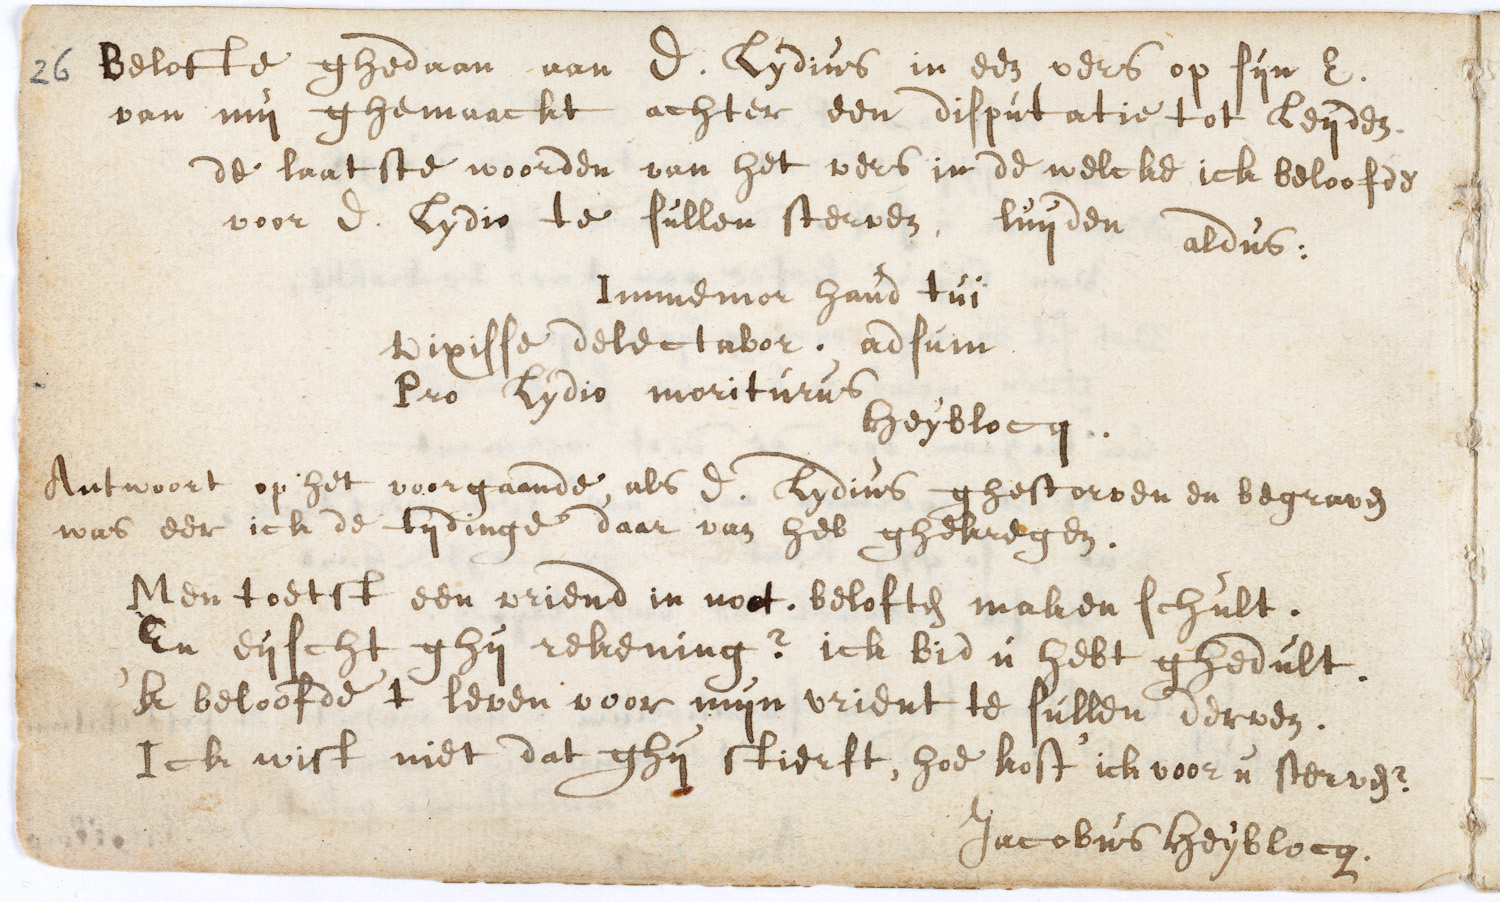 26 Belofte ghedaan aan D. Lydius in een vers op sijn E.
van mij ghemaackt achter een disputatie tot Leijden.
de laatste woorden van het vers in de welcke ick beloofde
voor D. Lydio te sullen sterven, luijden aldus:
Immemor haud tui
vixisse delectabor. adsum
Pro Lydio moriturus
Heyblocq.
Antwoort op het voorgaande, als D. Lydius ghestorven en begraven
was eer ick de tijdinge daar van heb ghekregen.
Men toetst een vriend in noot. beloften maken schult.
En eijscht ghij rekening? ick bid u hebt ghedult.
'k beloofde 't leven voor mijn vrient te sullen derven.
Ick wist niet dat ghij stierft, hoe kost' ick voor u sterven?
Jacobus Heyblocq.